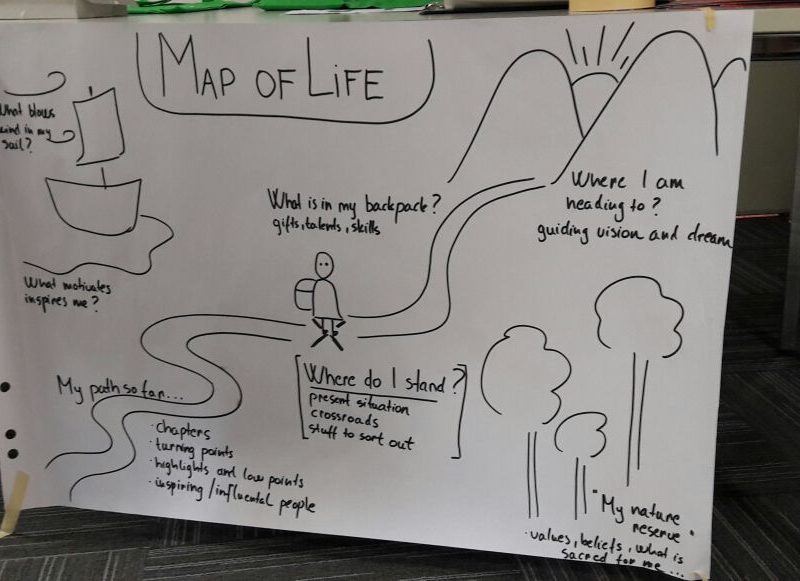 MAP OF LIFE
What blows
wind in my
sail?
What is in my backpack?
gifts, talents, skills
Where I am
heading to?
guiding vision and dream
What motivates
inspires me?
My path so far...
· chapters
· turning points
· highlights and low points
· inspiring/influental people
Where do I stand?
present situation
crossroads
stuff to sort out
"My nature
reserve"
· values, beliefs, what is
sacred for me...